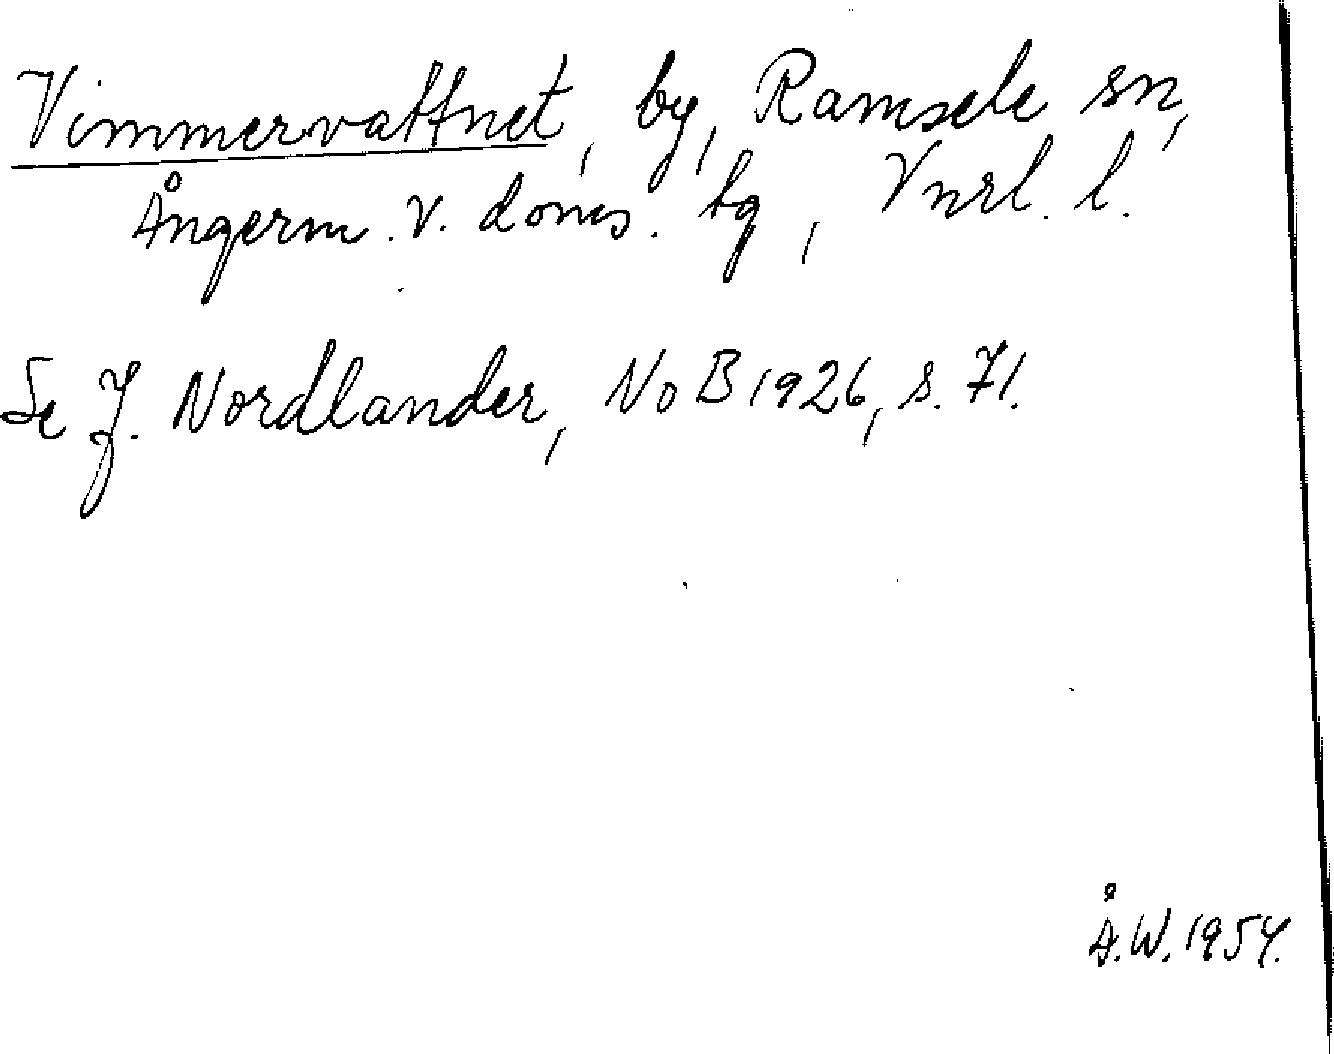 Vimmervattnet, by, Ramsele sn,
Ångerm. v. doms. tg, Vnrl. l.
Se J. Nordlander, NoB 1926, s. 71.
Å.W. 1954.